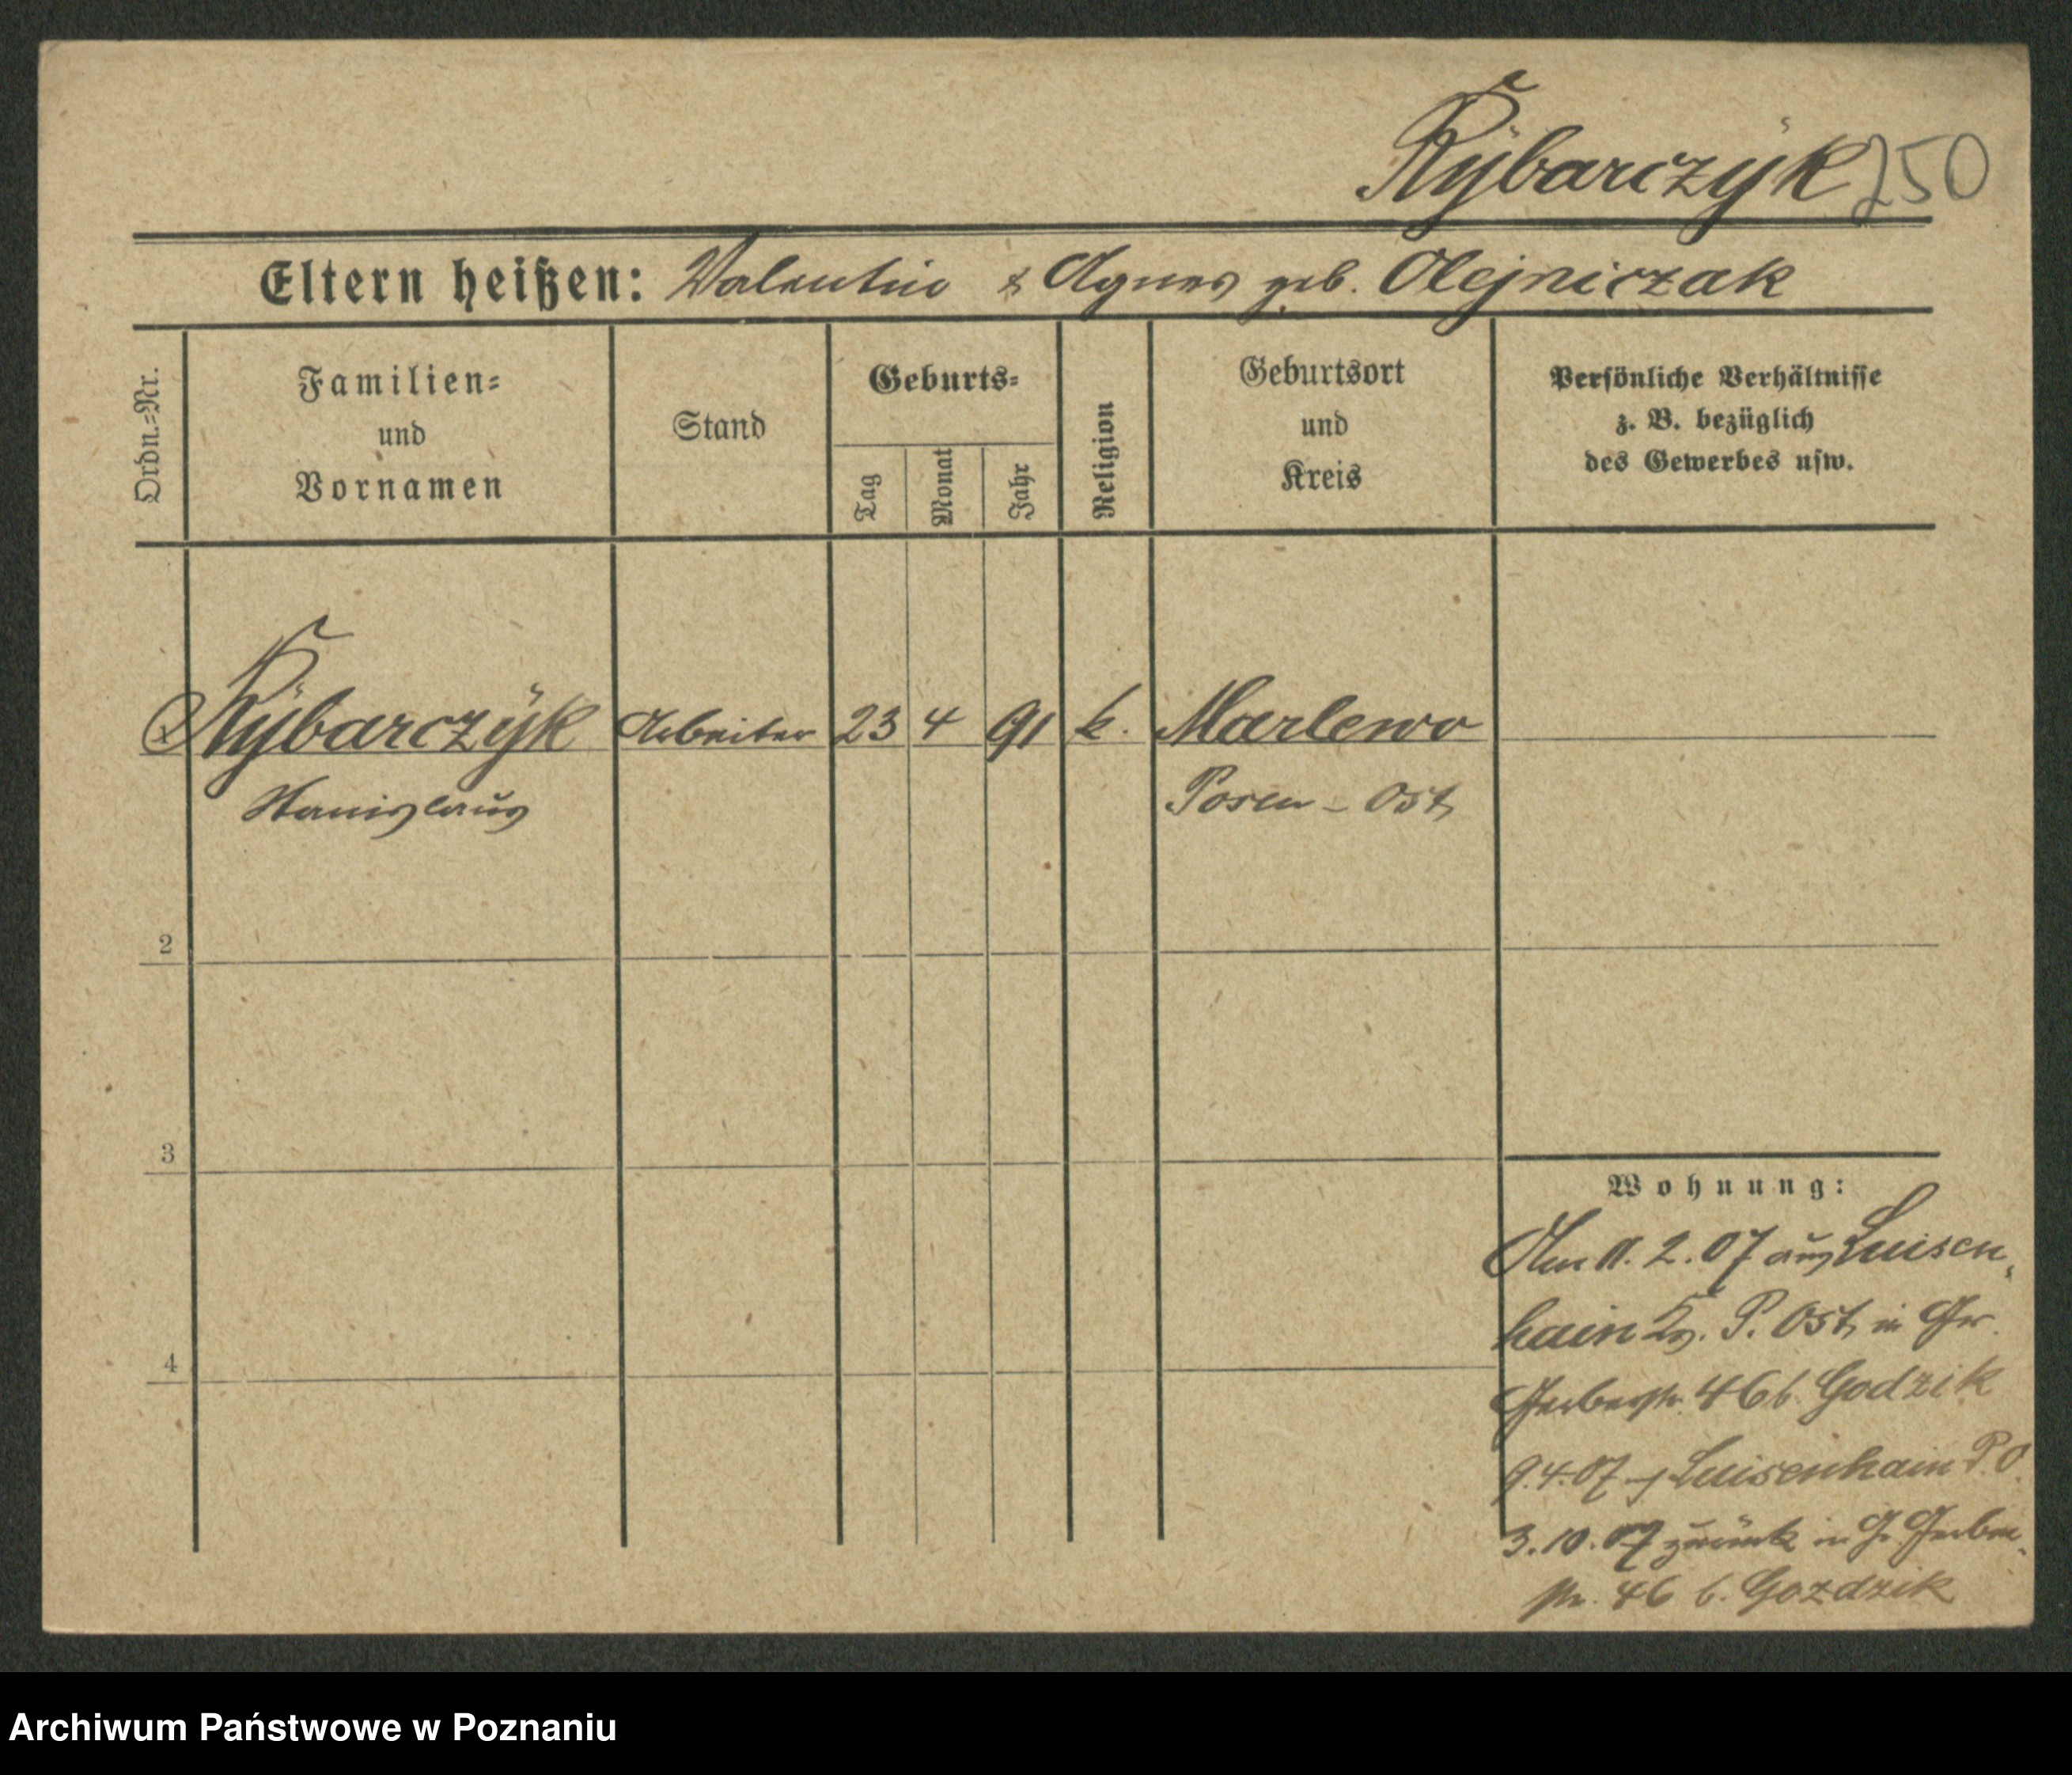 Rÿbarczÿk 250
Eltern heißen: Valentin & Agnes geb. Olejniczak
Ordn.-Nr.
Familien-
und
Vornamen
Stand
Geburts-
Tag
Monat
Jahr
Religion
Geburtsort
und
Kreis
Persönliche Verhältnisse
z. B. bezüglich
des Gewerbes usw.
1 Rÿbarczÿk Arbeiter 23 4 91 k. Marlewo
Stanislaus Posen-Ost
2
3
4
Wohnung:
Am 11.2.07 aus Luisen-
hain Kr. P. Ost in Gr.
Gerberstr. 46 b. Godzik
9.4.07 Luisenhain P.O.
3.10.07 zurück in Gr. Gerber-
str. 46 b. Gozdzik
Archiwum Państwowe w Poznaniu